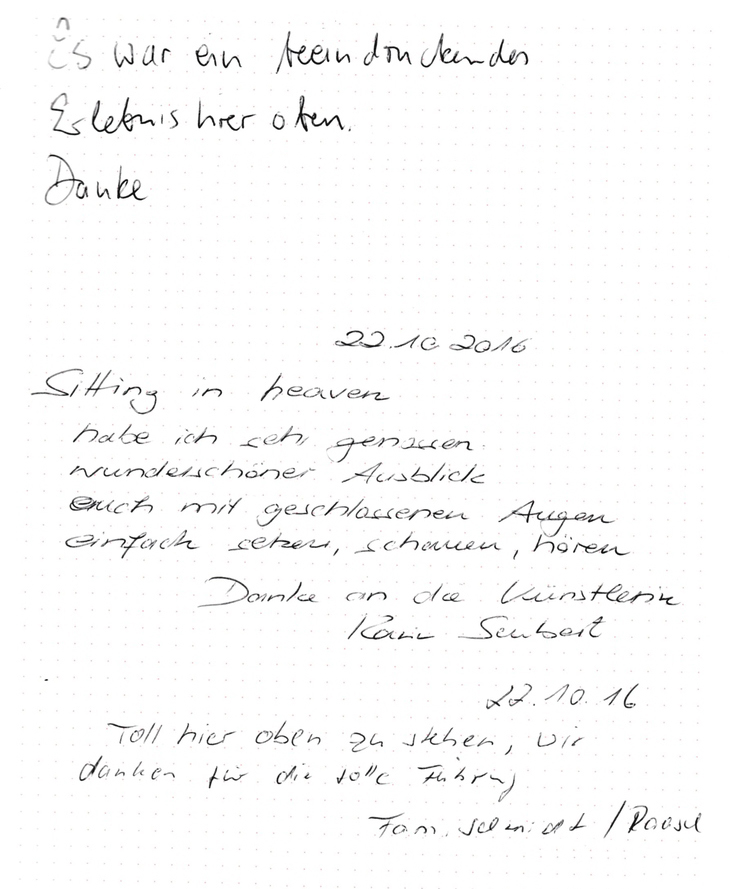 Es war ein beeindruckendes
Erlebnis hier oben.
Danke
22.10 2016
Sitting in heaven
habe ich sehr genossen
wunderschöner Ausblick
auch mit geschlossenen Augen
einfach setzen, schauen, hören
Danke an die Künstlerin
Karin Seubert
22.10.16
Toll hier oben zu stehen, wir
danken für die tolle Führung
Fam. Schmidt /